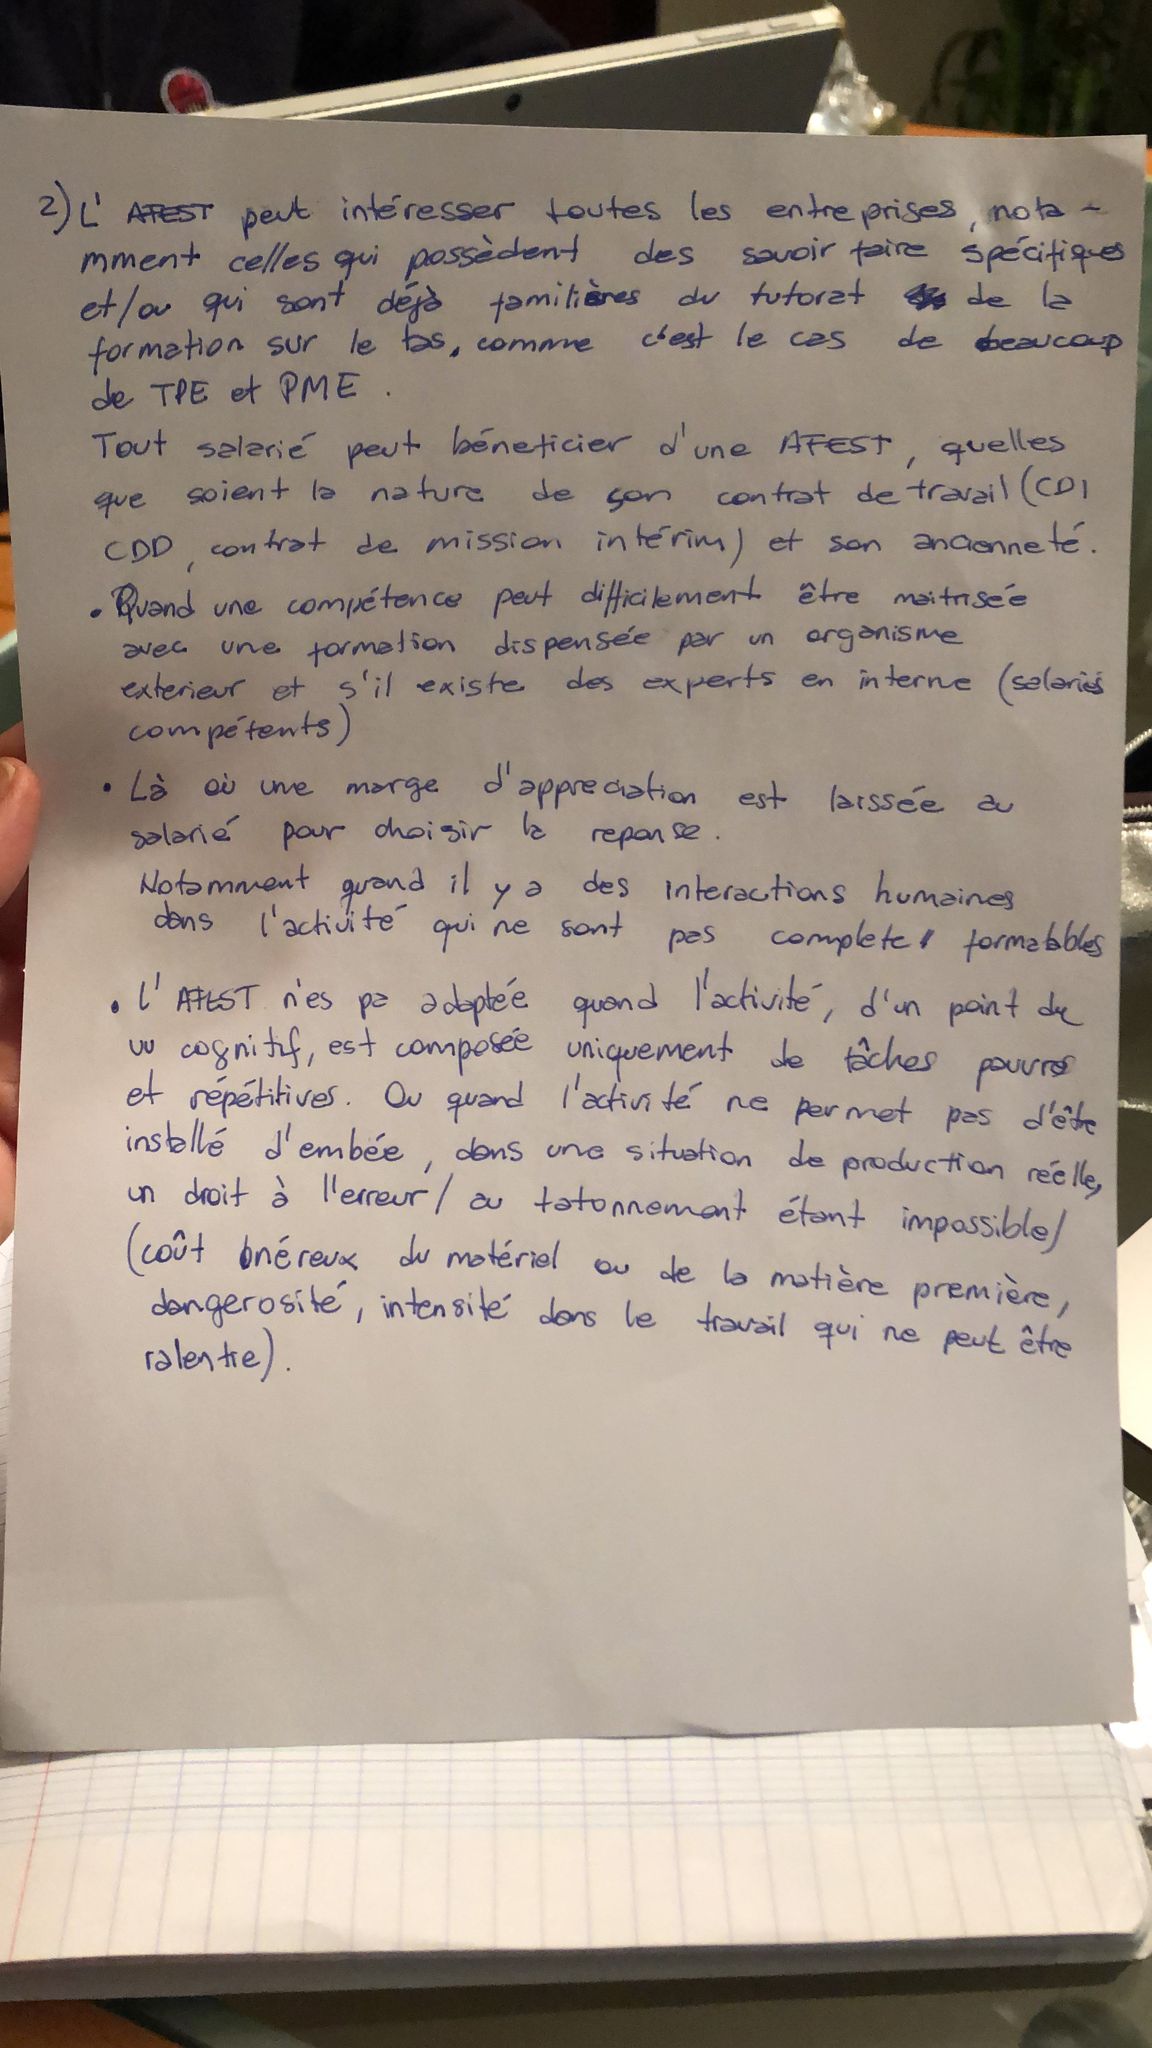 2) L' AFEST peut intéresser toutes les entreprises, nota-
mment celles qui possèdent des savoir faire spécifiques
et/ou qui sont déjà familières du tutorat de la
formation sur le tas, comme c'est le cas de beaucoup
de TPE et PME.
Tout salarié peut béneficier d'une AFEST, quelles
que soient la nature de son contrat de travail (CDI
CDD, contrat de mission intérim) et son ancienneté.
• Quand une compétence peut difficilement être maitrisée
avec une formation dispensée par un organisme
exterieur et s'il existe des experts en interne (salariés
compétents)
• Là où une marge d'appreciation est laissée au
salarié pour choisir la reponse.
Notamment quand il y a des interactions humaines
dans l'activité qui ne sont pas complete formatables
• L' AFEST n'es pa adaptée quand l'activité, d'un point de
vu cognitif, est composée uniquement de tâches pauvres
et répétitives. Ou quand l'activité ne permet pas d'être
installé d'embée, dans une situation de production réelle,
un droit à l'erreur/ au tatonnement étant impossible/
(coût onéreux du matériel ou de la matière première,
dangerosité, intensité dans le travail qui ne peut être
ralentie).